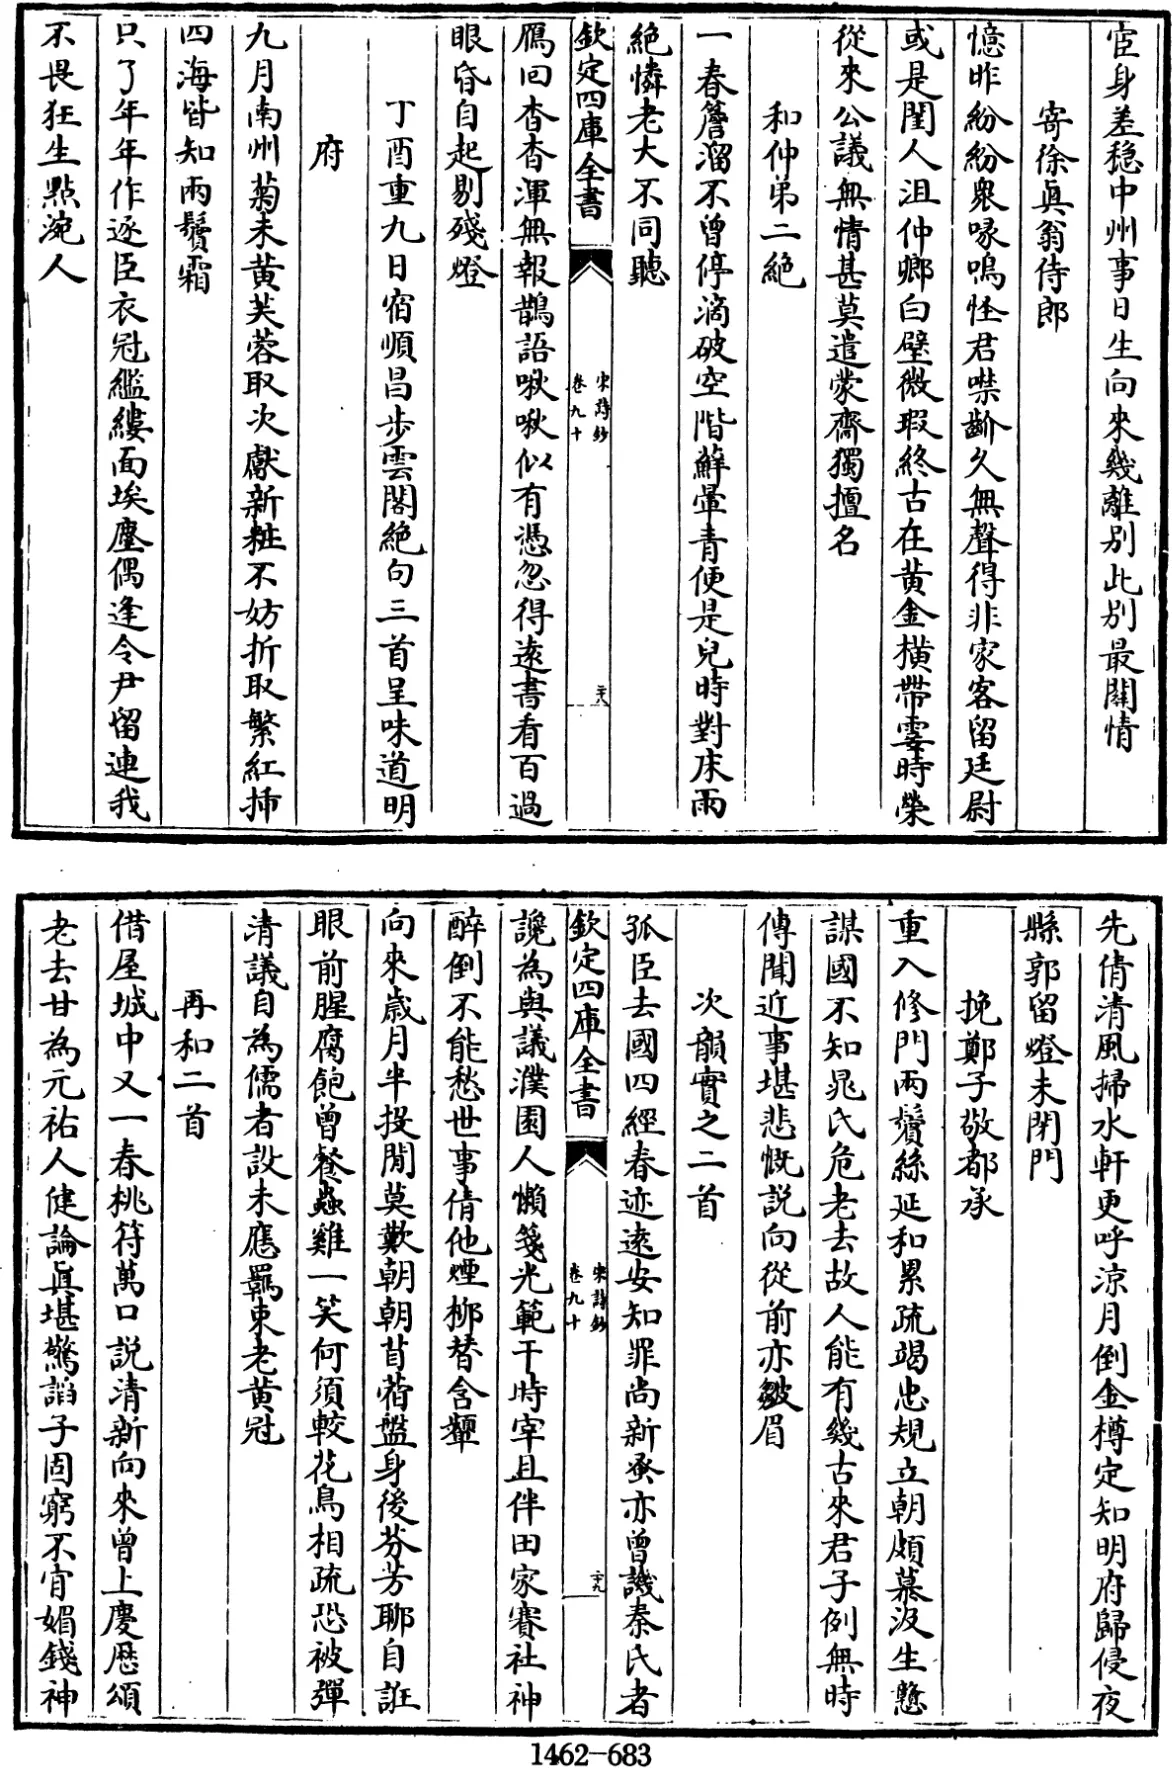 宦身差穩中州事日生向來幾離別此別最關情
寄徐眞翁侍郎
憶昨紛紛衆喙鳴怪君噤齘久無聲得非家客留廷尉
或是閨人沮仲卿白璧微瑕終古在黄金横帶霎時榮
從來公議無情甚莫遣蒙齋獨擅名
和仲弟二絶
一春簷溜不曾停滴破空階蘚暈青便是兒時對床雨
絶憐老大不同聽
欽定四庫全書
宋詩鈔
卷九十
二十八
鴈回杳杳渾無報鵲語啾啾似有憑忽得遠書看百過
眼昏自起剔殘燈
丁酉重九日宿順昌步雲閣絶句三首呈味道明
府
九月南州菊未黄芙蓉取次獻新粧不妨折取繁紅揷
四海皆知兩鬢霜
只了年年作逐臣衣冠繿縷面埃塵偶逢令尹留連我
不畏狂生點涴人
先倩清風掃水軒更呼涼月倒金樽定知明府歸侵夜
縣郭留燈未閉門
挽鄭子敬都承
重入修門兩鬢絲延和累疏竭忠規立朝頗慕汲生戇
謀國不知晁氏危老去故人能有幾古來君子例無時
傳聞近事堪悲慨説向從前亦皺眉
次韻實之二首
孤臣去國四經春迹遠安知罪尚新蚤亦曾譏秦氏者
欽定四庫全書
宋詩鈔
卷九十
二十九
讒為與議濮園人懶箋光範干時宰且伴田家賽社神
醉倒不能愁世事倩他煙柳替含顰
向來歲月半投閒莫歎朝朝苜蓿盤身後芬芳聊自誑
眼前腥腐飽曾餐蟲雞一笑何須較花鳥相疏恐被彈
清議自為儒者設未應羈束老黄冠
再和二首
借屋城中又一春桃符萬口説清新向來曾上慶厯頌
老去甘為元祐人健論眞堪驚謟子固窮不肯媚錢神
1462-683